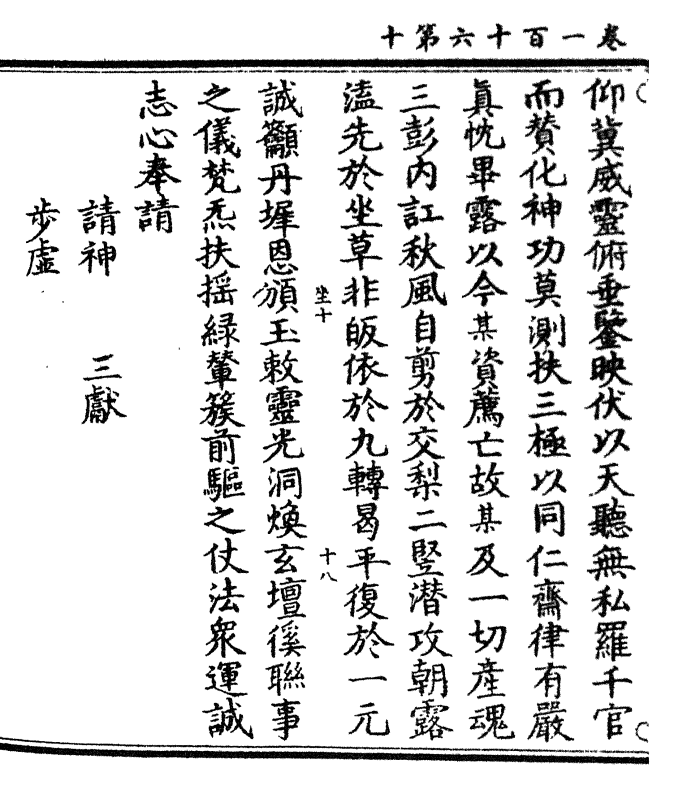 卷一百十六第十
仰冀威靈俯垂鑒映伏以天聽無私羅千官
而贊化神功莫測扶三極以同仁齋律有嚴
眞忱畢露以今某資薦亡故某及一切產魂
三彭內訌秋風自剪於交梨二竪潛攻朝露
溘先於坐草非皈依於九轉曷平復於一元
坐十 十八
誠籲丹墀恩頒玉敕靈光洞煥玄壇徯聯事
之儀梵炁扶搖綠輦簇前驅之仗法眾運誠
志心奉請
請神 三獻
步虛